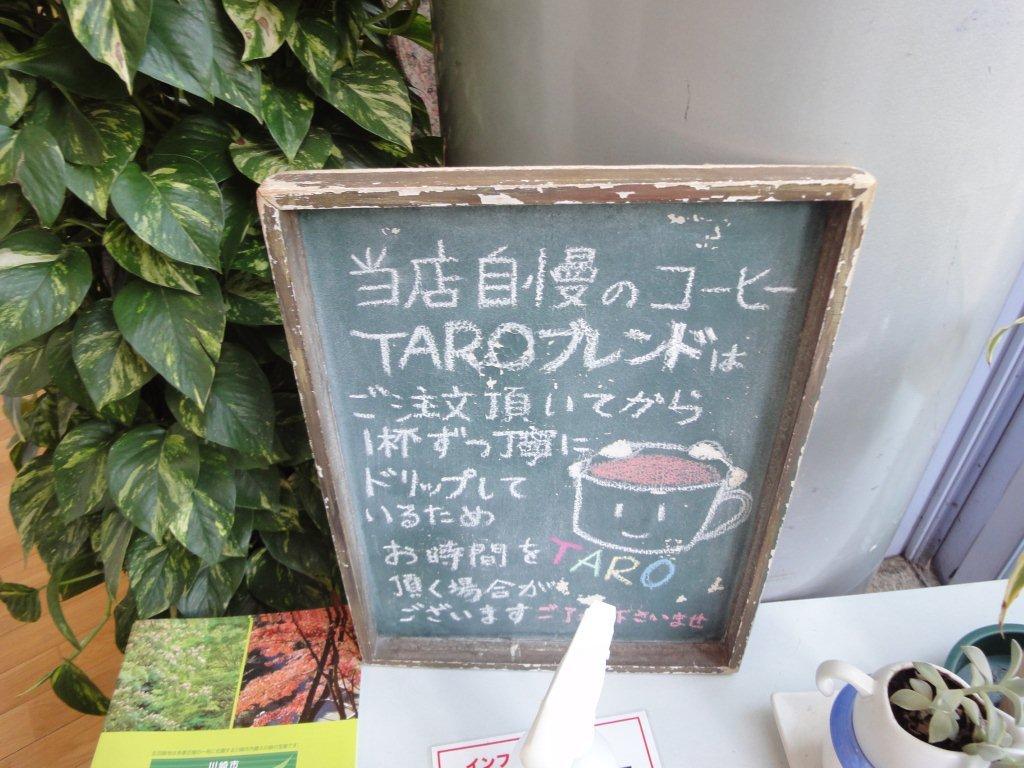 当店自慢のコーヒー
TAROブレンドは
ご注文頂いてから
1杯ずつ丁寧に
ドリップして
いるため
お時間を
頂く場合が
ございます
TARO
川崎市
インフ